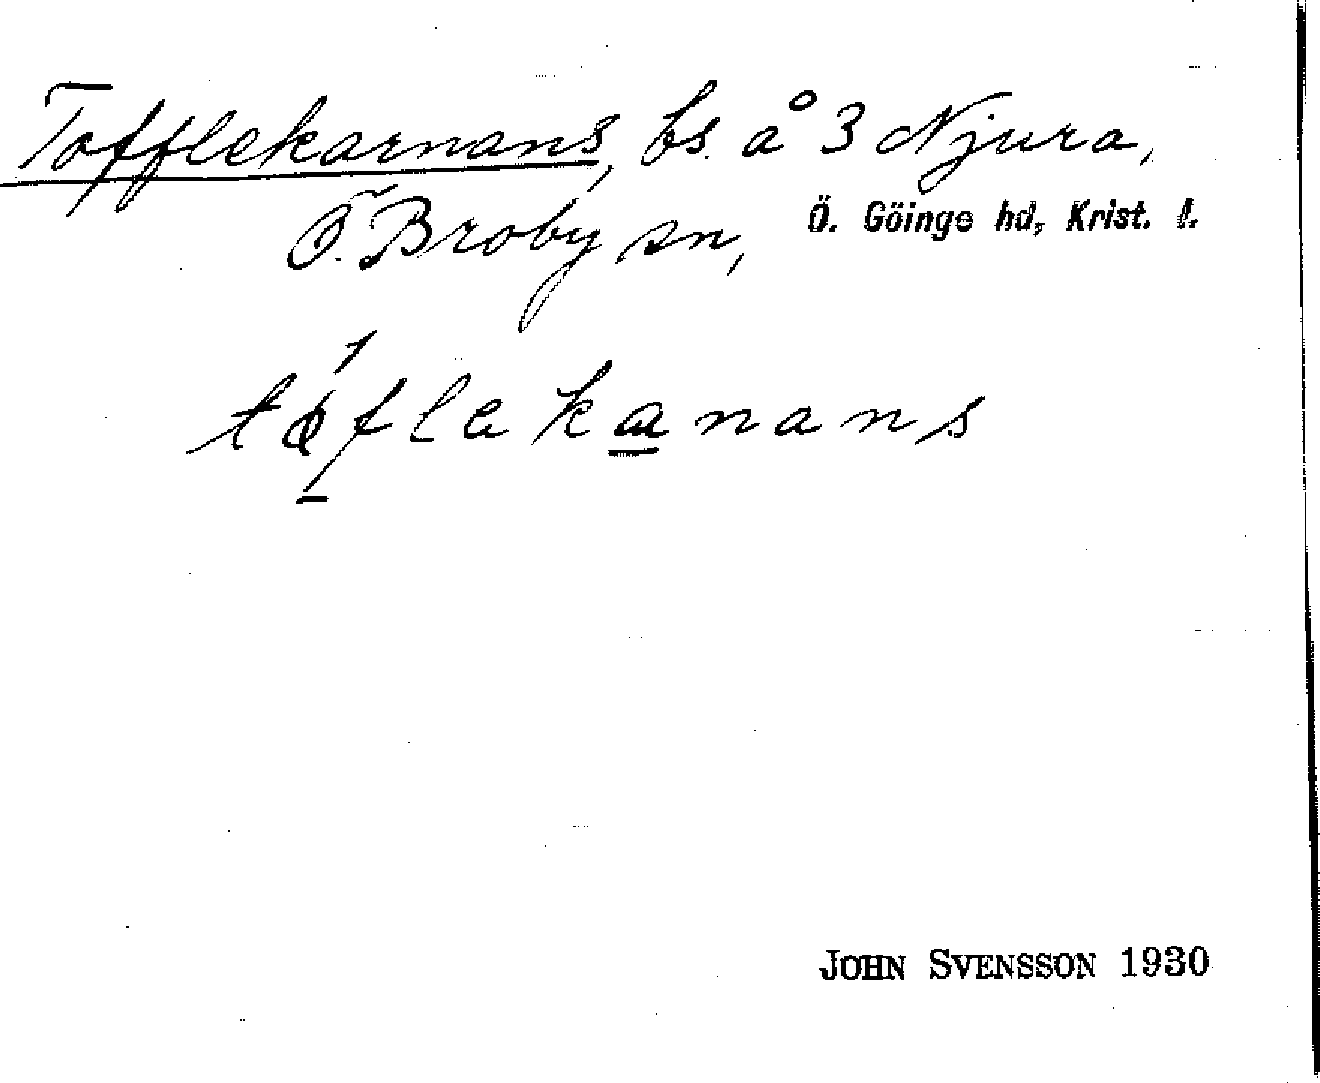 Tofflekarnans, bs. å 3 Njura,
Ö. Broby sn, Ö. Göinge hd, Krist. l.
tóflekanans
JOHN SVENSSON 1930